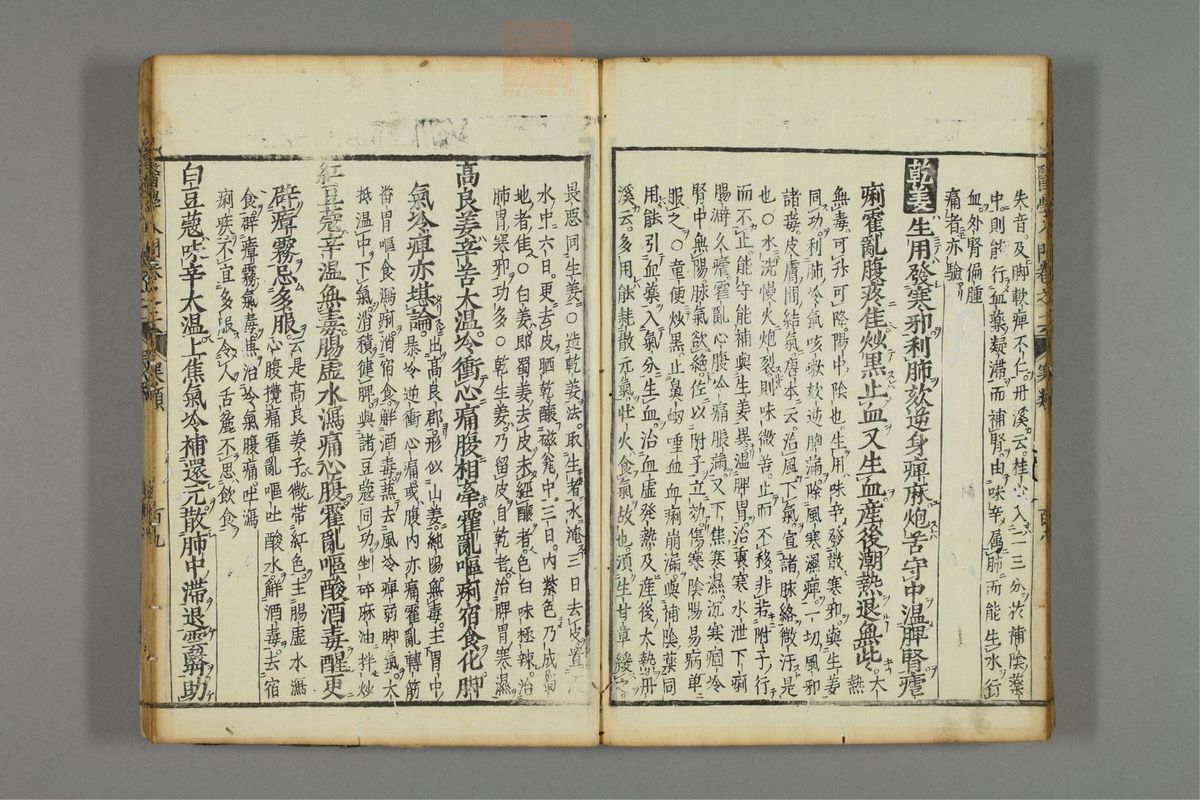 失音。及脚軟痺不仁。丹溪云。桂心入二三分於補陰藥
中。則能行血藥凝滯。而補腎。由味辛屬肺。而能生水行
血。外腎偏腫
痛者亦驗
乾姜生用發寒邪利肺欬逆身痺麻炮苦守中溫脾腎瘧
痢霍亂腹疼佳炒黑止血又生血產後潮熱退無些大熱
無毒。可升可降。陽中陰也。生用味辛發散寒邪與生姜
同功。利肺冷氣咳嗽欬逆胸滿。除風寒濕痺。一切風邪
諸毒。皮膚間結氣。唐本云。治風下氣。宜諸脉絡微汗是
也〇水洗慢火炮裂則味微苦。止而不移。非若附子行
而不止。能守能補與生姜異。溫脾胃治裏寒水泄下痢
腸澼久瘧霍亂心腹冷痛脹滿。又下焦寒濕。沉寒痼冷
腎中無陽脉氣欲絶。佐以附子立効。傷寒陰陽易病單
服之。〇童便炒黑。止鼻衂唾血血痢崩漏。與補陰藥同
用。能引血藥入氣分生血。治血虛發熱及產後大熱。丹
溪云。多用能耗散元氣。壯火食氣故也。須生甘草緩之。
畏惡同生姜。〇造乾姜法。取生者。水淹三日去皮。置
水中六日。更去皮晒乾。釀磁瓮中三日。内紫色乃成。
地者佳。〇白姜即蜀姜去皮未經釀者。色白味極辣。治
肺胃寒邪功多〇乾生姜乃留皮自乾者。治脾胃寒濕
高良姜辛苦大溫冷衝心痛腹相牽霍亂嘔痢宿食化脚
氣冷痺亦堪論出高良郡。形似山姜。純陽無毒。主胃中
暴冷逆衝心痛。或腹内亦痛霍亂轉筋
番胃嘔食瀉痢消宿食。解酒毒。兼去風冷痺弱脚氣。大
抵溫中下氣。消積健脾與諸豆蔻同功。剉碎麻油拌炒
紅豆蔻辛溫無毒腸虛水瀉痛心腹霍亂嘔酸酒毒醒更
辟瘴霧忌多服云是高良姜子。微帶紅色。主腸虛水瀉
心腹攪痛霍亂嘔吐酸水解酒毒。去宿
食。辟瘴霧氣毒。兼治冷氣腹痛。吐瀉
痢疾。不宜多服。令人舌麄不思飲食
白豆蔻味辛大溫上焦氣冷補還元散肺中滯退雲翳助